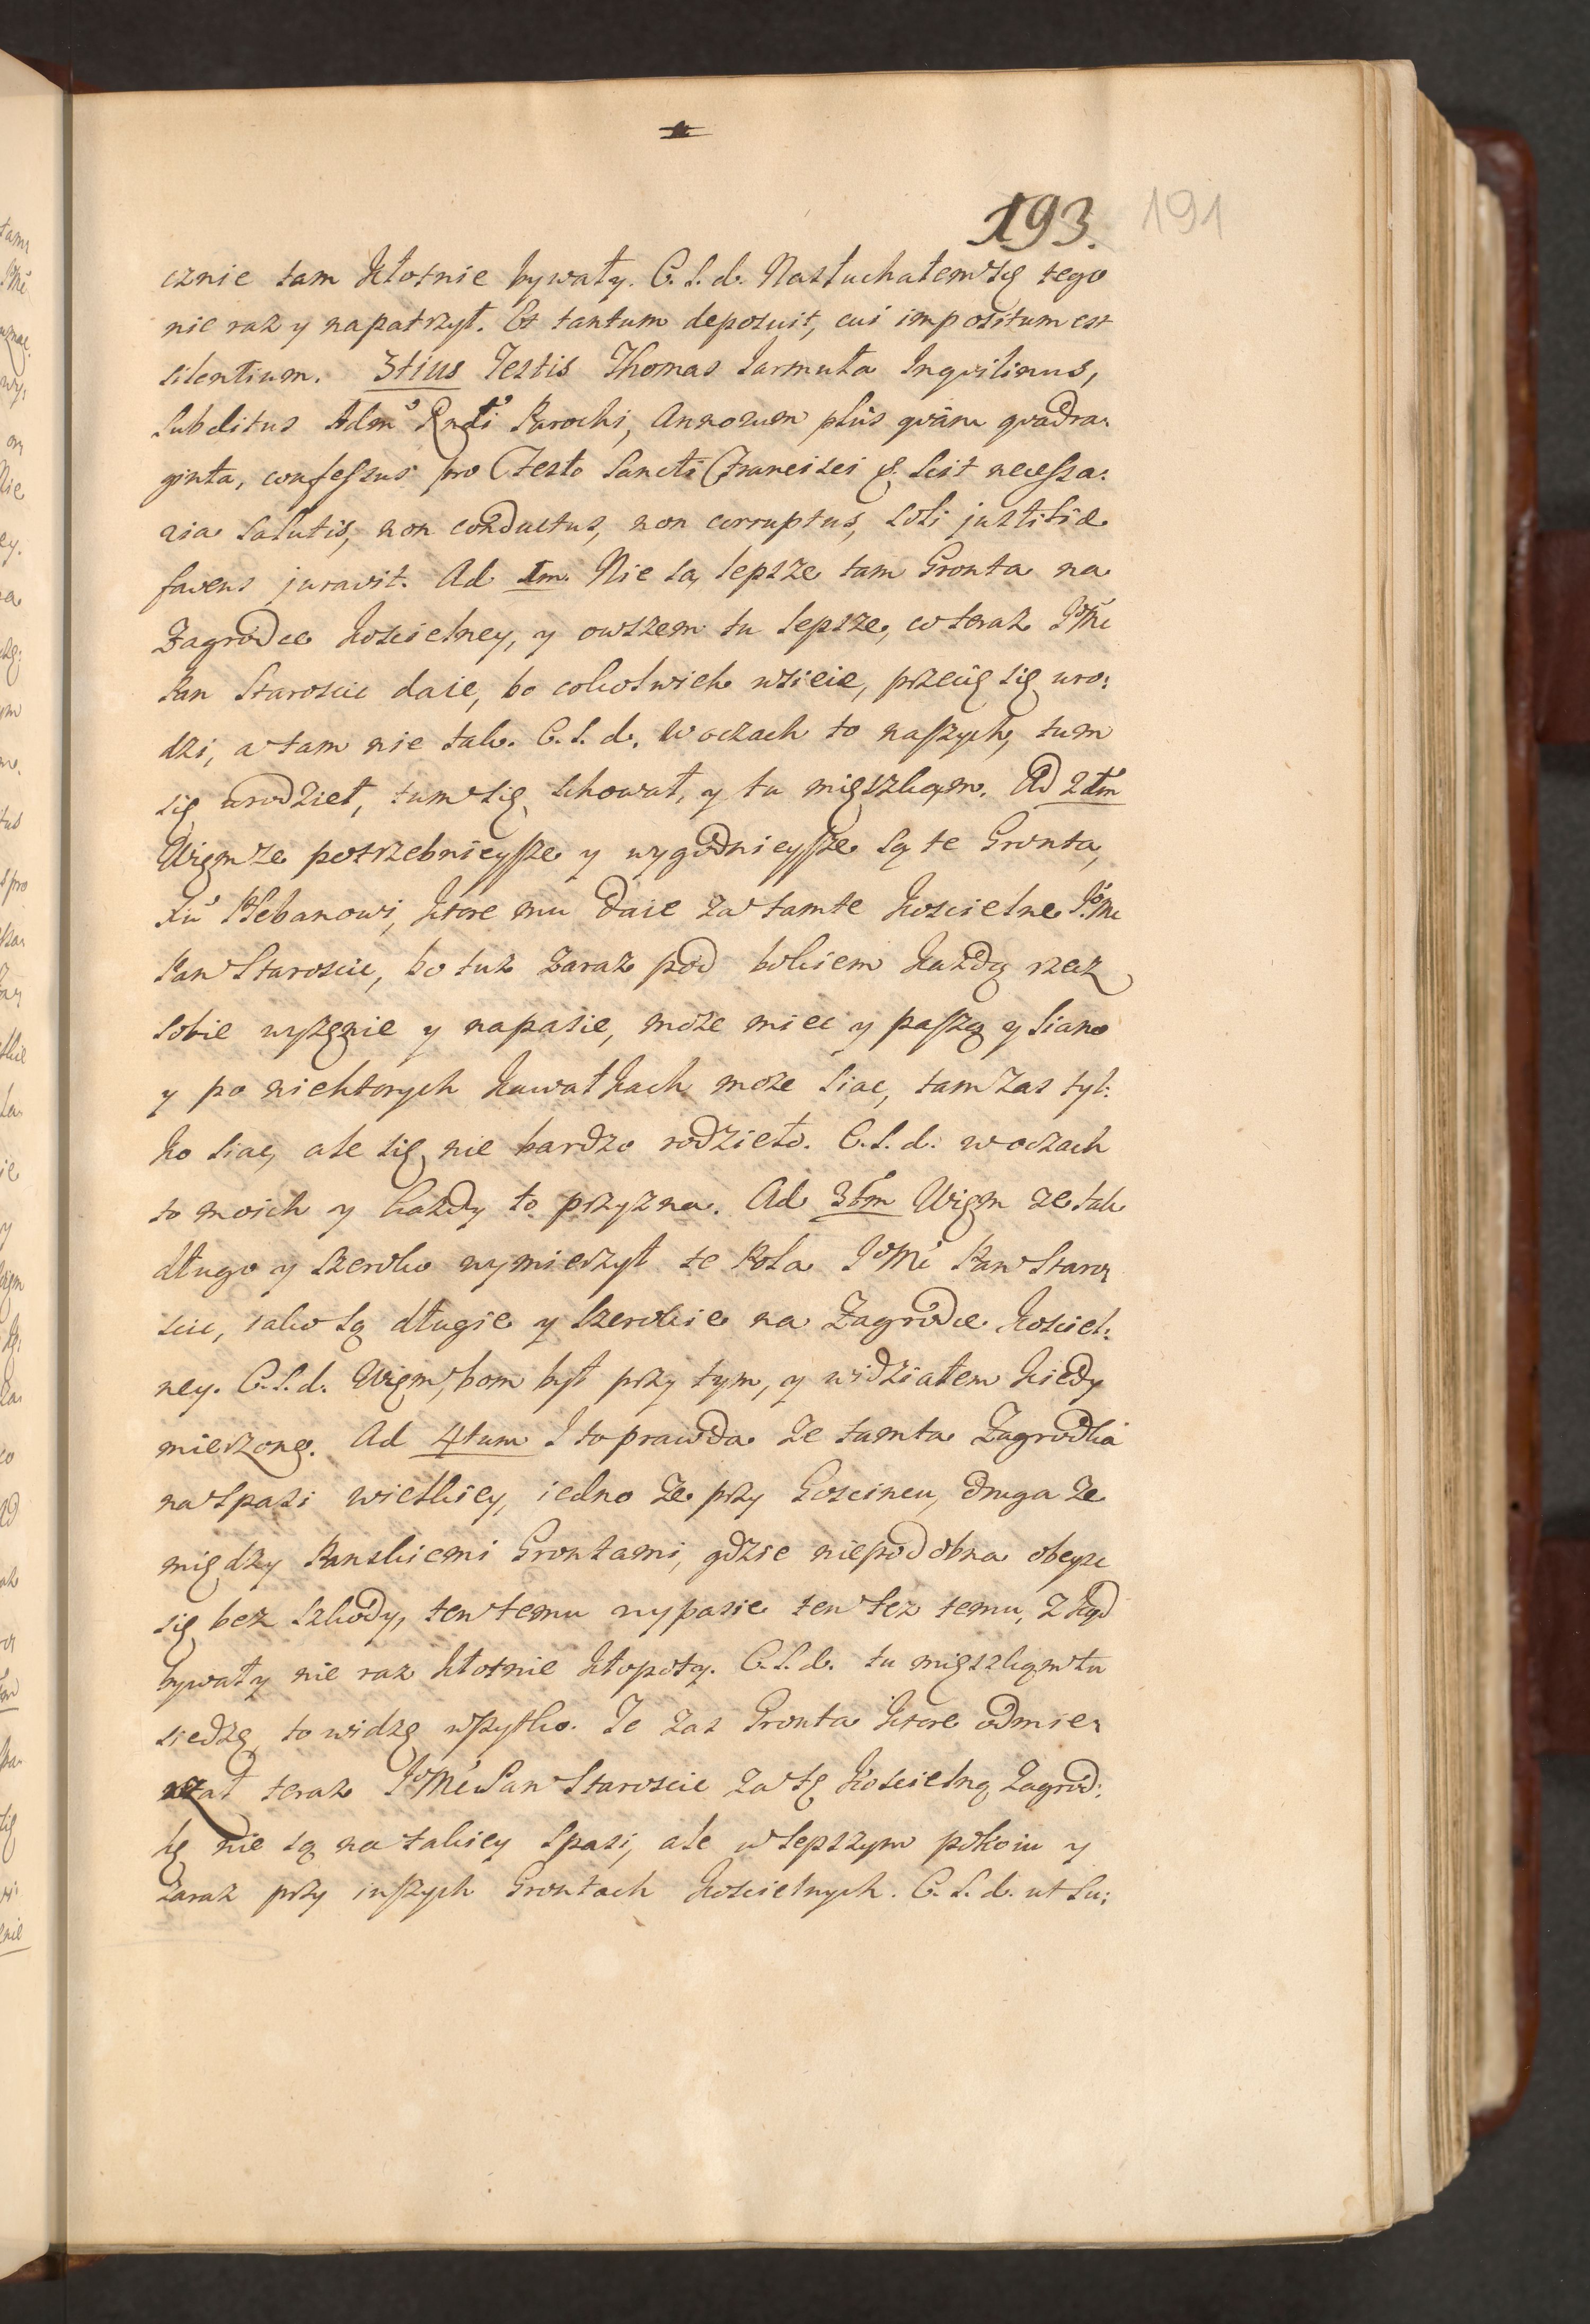 193. 191
cznie tam kłotnie bywały. C. S. d. Nasłuchałem się tego
nie raz y napatrzył. Et tantum deposuit, cui impositum est
silentium. 3tius Testis Thomas Jarmuła Inqvilinus,
Subditus Adm Rndi Parochi, Annorum plus qvam qvadra:
ginta, confessus pro Festo Sancti Francisci scit necessa:
ria salutis, non conductus, non corruptus, soli justitiæ
favens juravit. Ad 1m. Nie są lepsze tam Gronta na
Zagrodce koscielney, y owszem tu lepsze, co teraz JoMc
Pan Staroscic daie, bo cokolwiek wsieie, przecię się uro:
dzi, a tam nie tak. C. S. d. w oczach to naszych, tum
się urodzieł, tum się schował, y tu mięszkąm. Ad 2dm
Więm ze potrzebnieysze y wygodnieysze są te Gronta,
Xu Plebanowi, ktore mu daie za tamte koscielne JoMc
Pan Staroscic, bo tuż zaraz pod bokiem każdą rzecz
sobie wyżęnie y napasie, może miec y paszą y siano
y po niektorych kawałkach może siac, tam zas tyl:
ko siac, ale się nie bardzo rodzieło. C. S. d. w oczach
to moich y każdy to przyzna. Ad 3tm Więm ze tak
długo y szeroko wymierzył te Pola JoMc Pan Staro:
scic, iako są długie y szerokie na Zagrodce koscieł:
ney. C. S. d. Więm, bom był przy tym, y widziałem kiedy
mierzono. Ad 4tum I to prawda ze tamta Zagrodka
na spasi wielkiey, iedno ze przy Goscincu, druga ze
między Panskiemi Grontami, gdzie niepodobna obeysc
się bez szkody, ten temu wypasie ten tez temu, z kąd
bywały nie raz kłotnie kłopoty. C. S. d. tu mięszkąm tu
siedzę, to widzę wszytko. Ze zas Gronta ktore odmie:
rzał teraz JoMc Pan Staroscic za tę Koscielną Zagrod:
kę nie są na takiey spasi, ale w lepszym pokoiu y
zaraz przy inszych Grontach koscielnych. C. S. d. ut su: